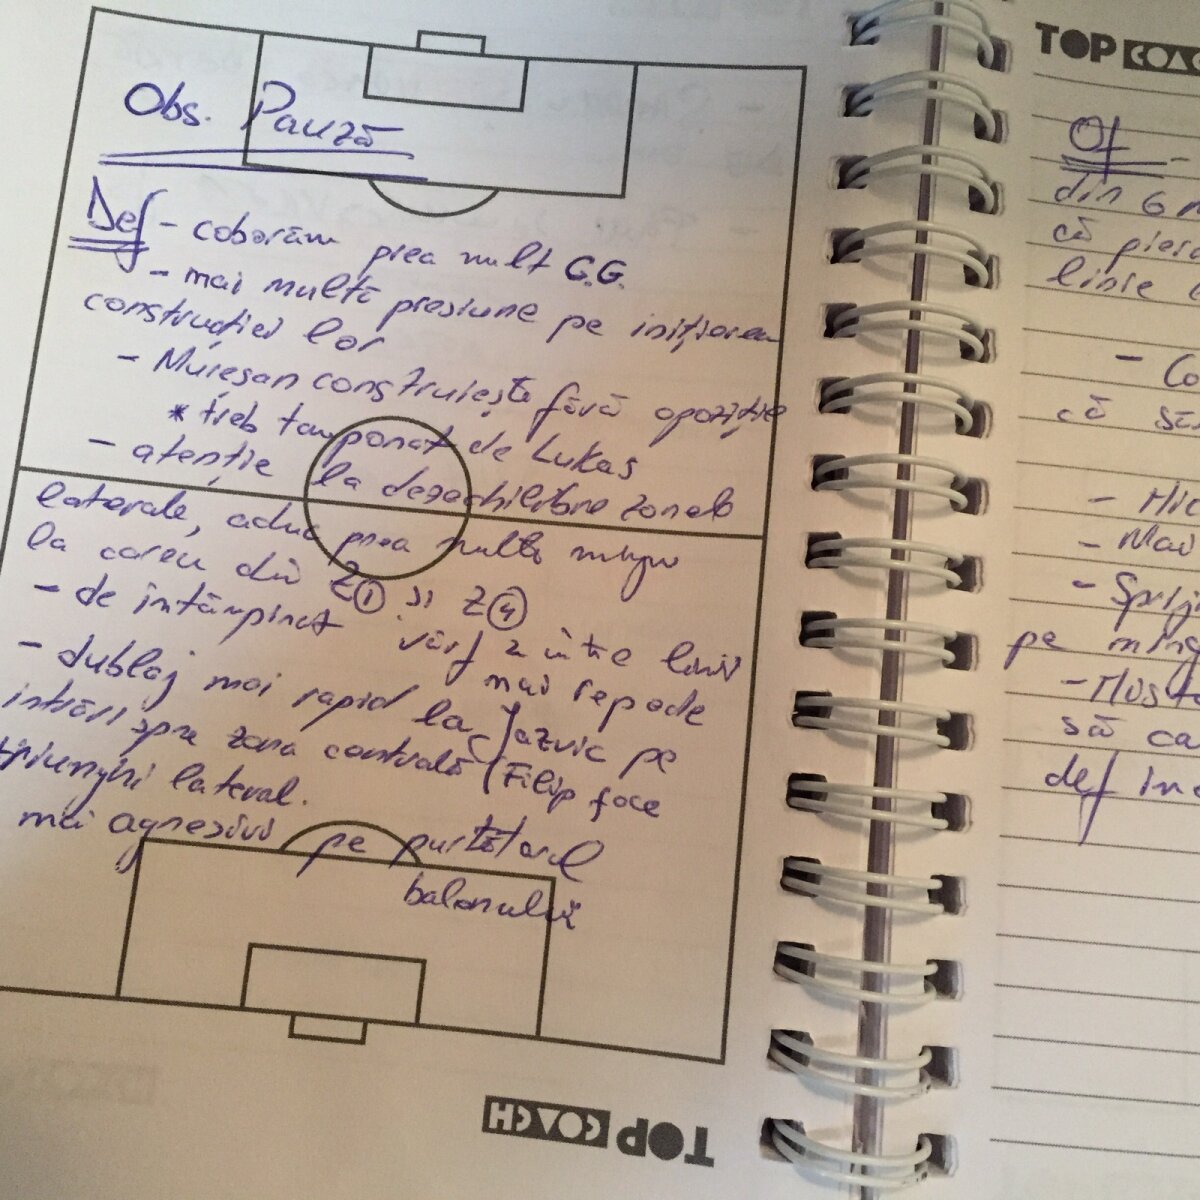 Obs. Pauză
Def - coborâm prea mult G.G.
- mai multă presiune pe inițierea
construcției lor
- Mureșan construiește fără opoziție
* treb tamponat de Lukas
- atenție la dezechilibre zonele
laterale, aduc prea multe mingi
la careu din Z① și Z④
- de întâmpinat vârf 2 între linii
mai repede
- dublaj mai rapid la Jazvic pe
intrări spre zona centrală (Filip face
lateral.
mai agresivi pe purtătorul
balonului
TOP COACH
TOP COAC
Of -
din 6
că
linie
- Co
că
-
- Mai
-
pe
-
să ca
def